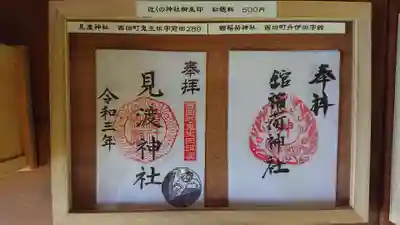 近くの神社御朱印 初穂料 500円
見渡神社 西田町鬼生田字宮田289
館稲荷神社 西田町丹伊田字館
奉拝
見渡神社
令和三年
奉拝
館稲荷神社